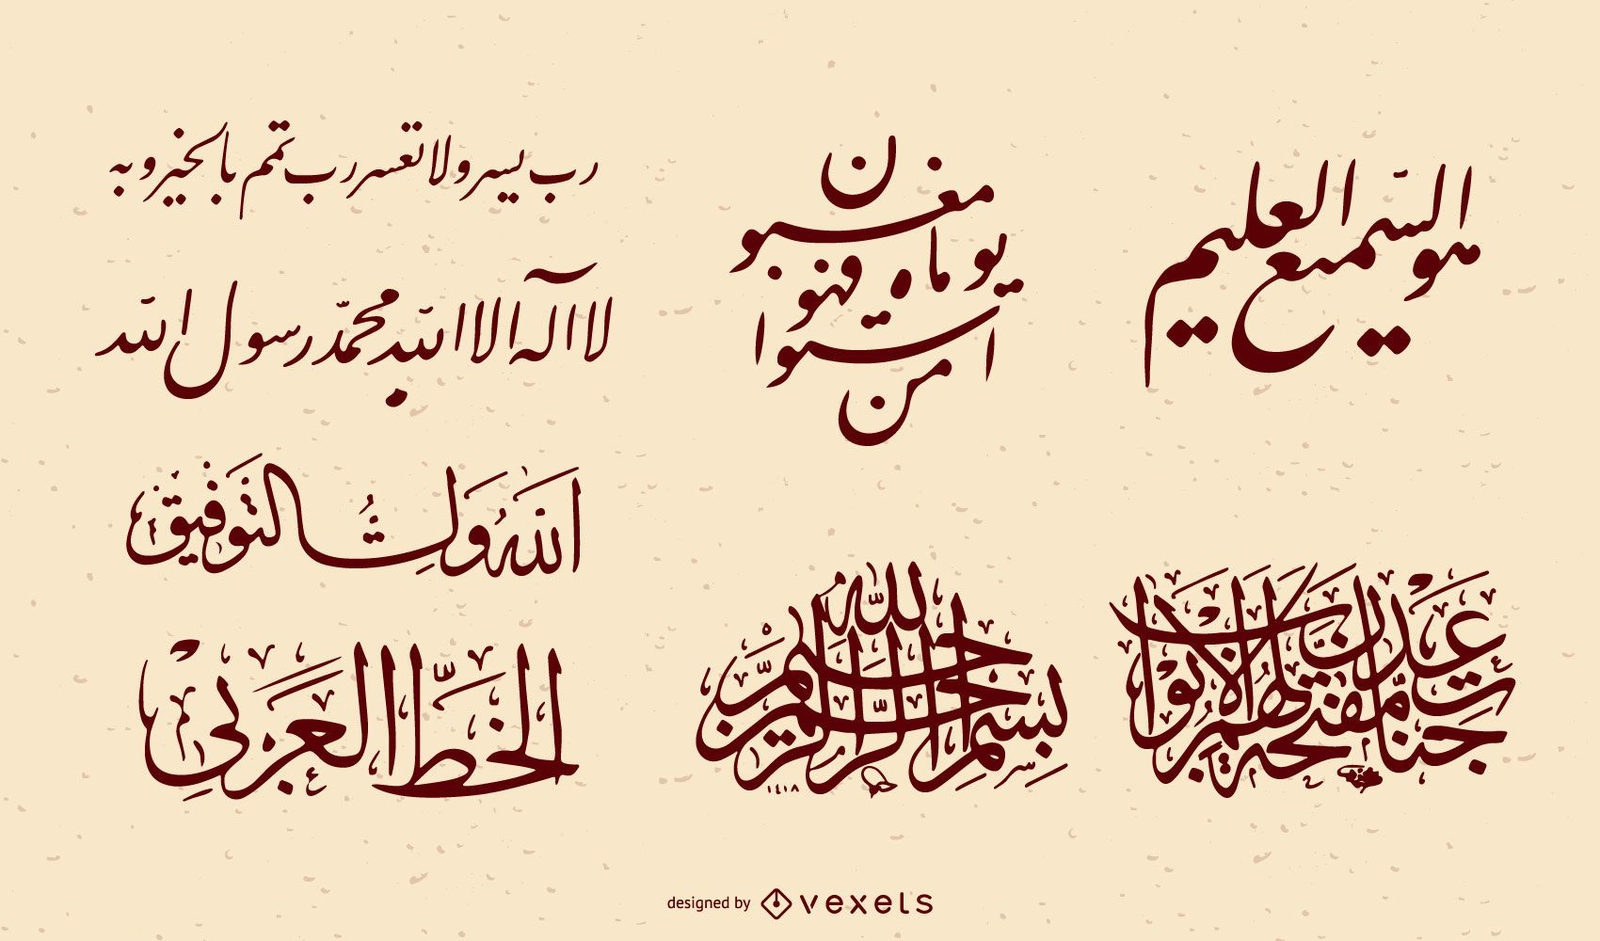 رب يسر ولا تعسر رب تمم بالخير وبه
لا اله الا الله محمد رسول الله
الله ولي التوفيق
الخط العربي
من استوا يوماه فهو مغبون
هو السميع العليم
بسم الله الرحمن الرحيم
١٤١٨
جنات عدن مفتحة لهم الأبواب
designed by vexels